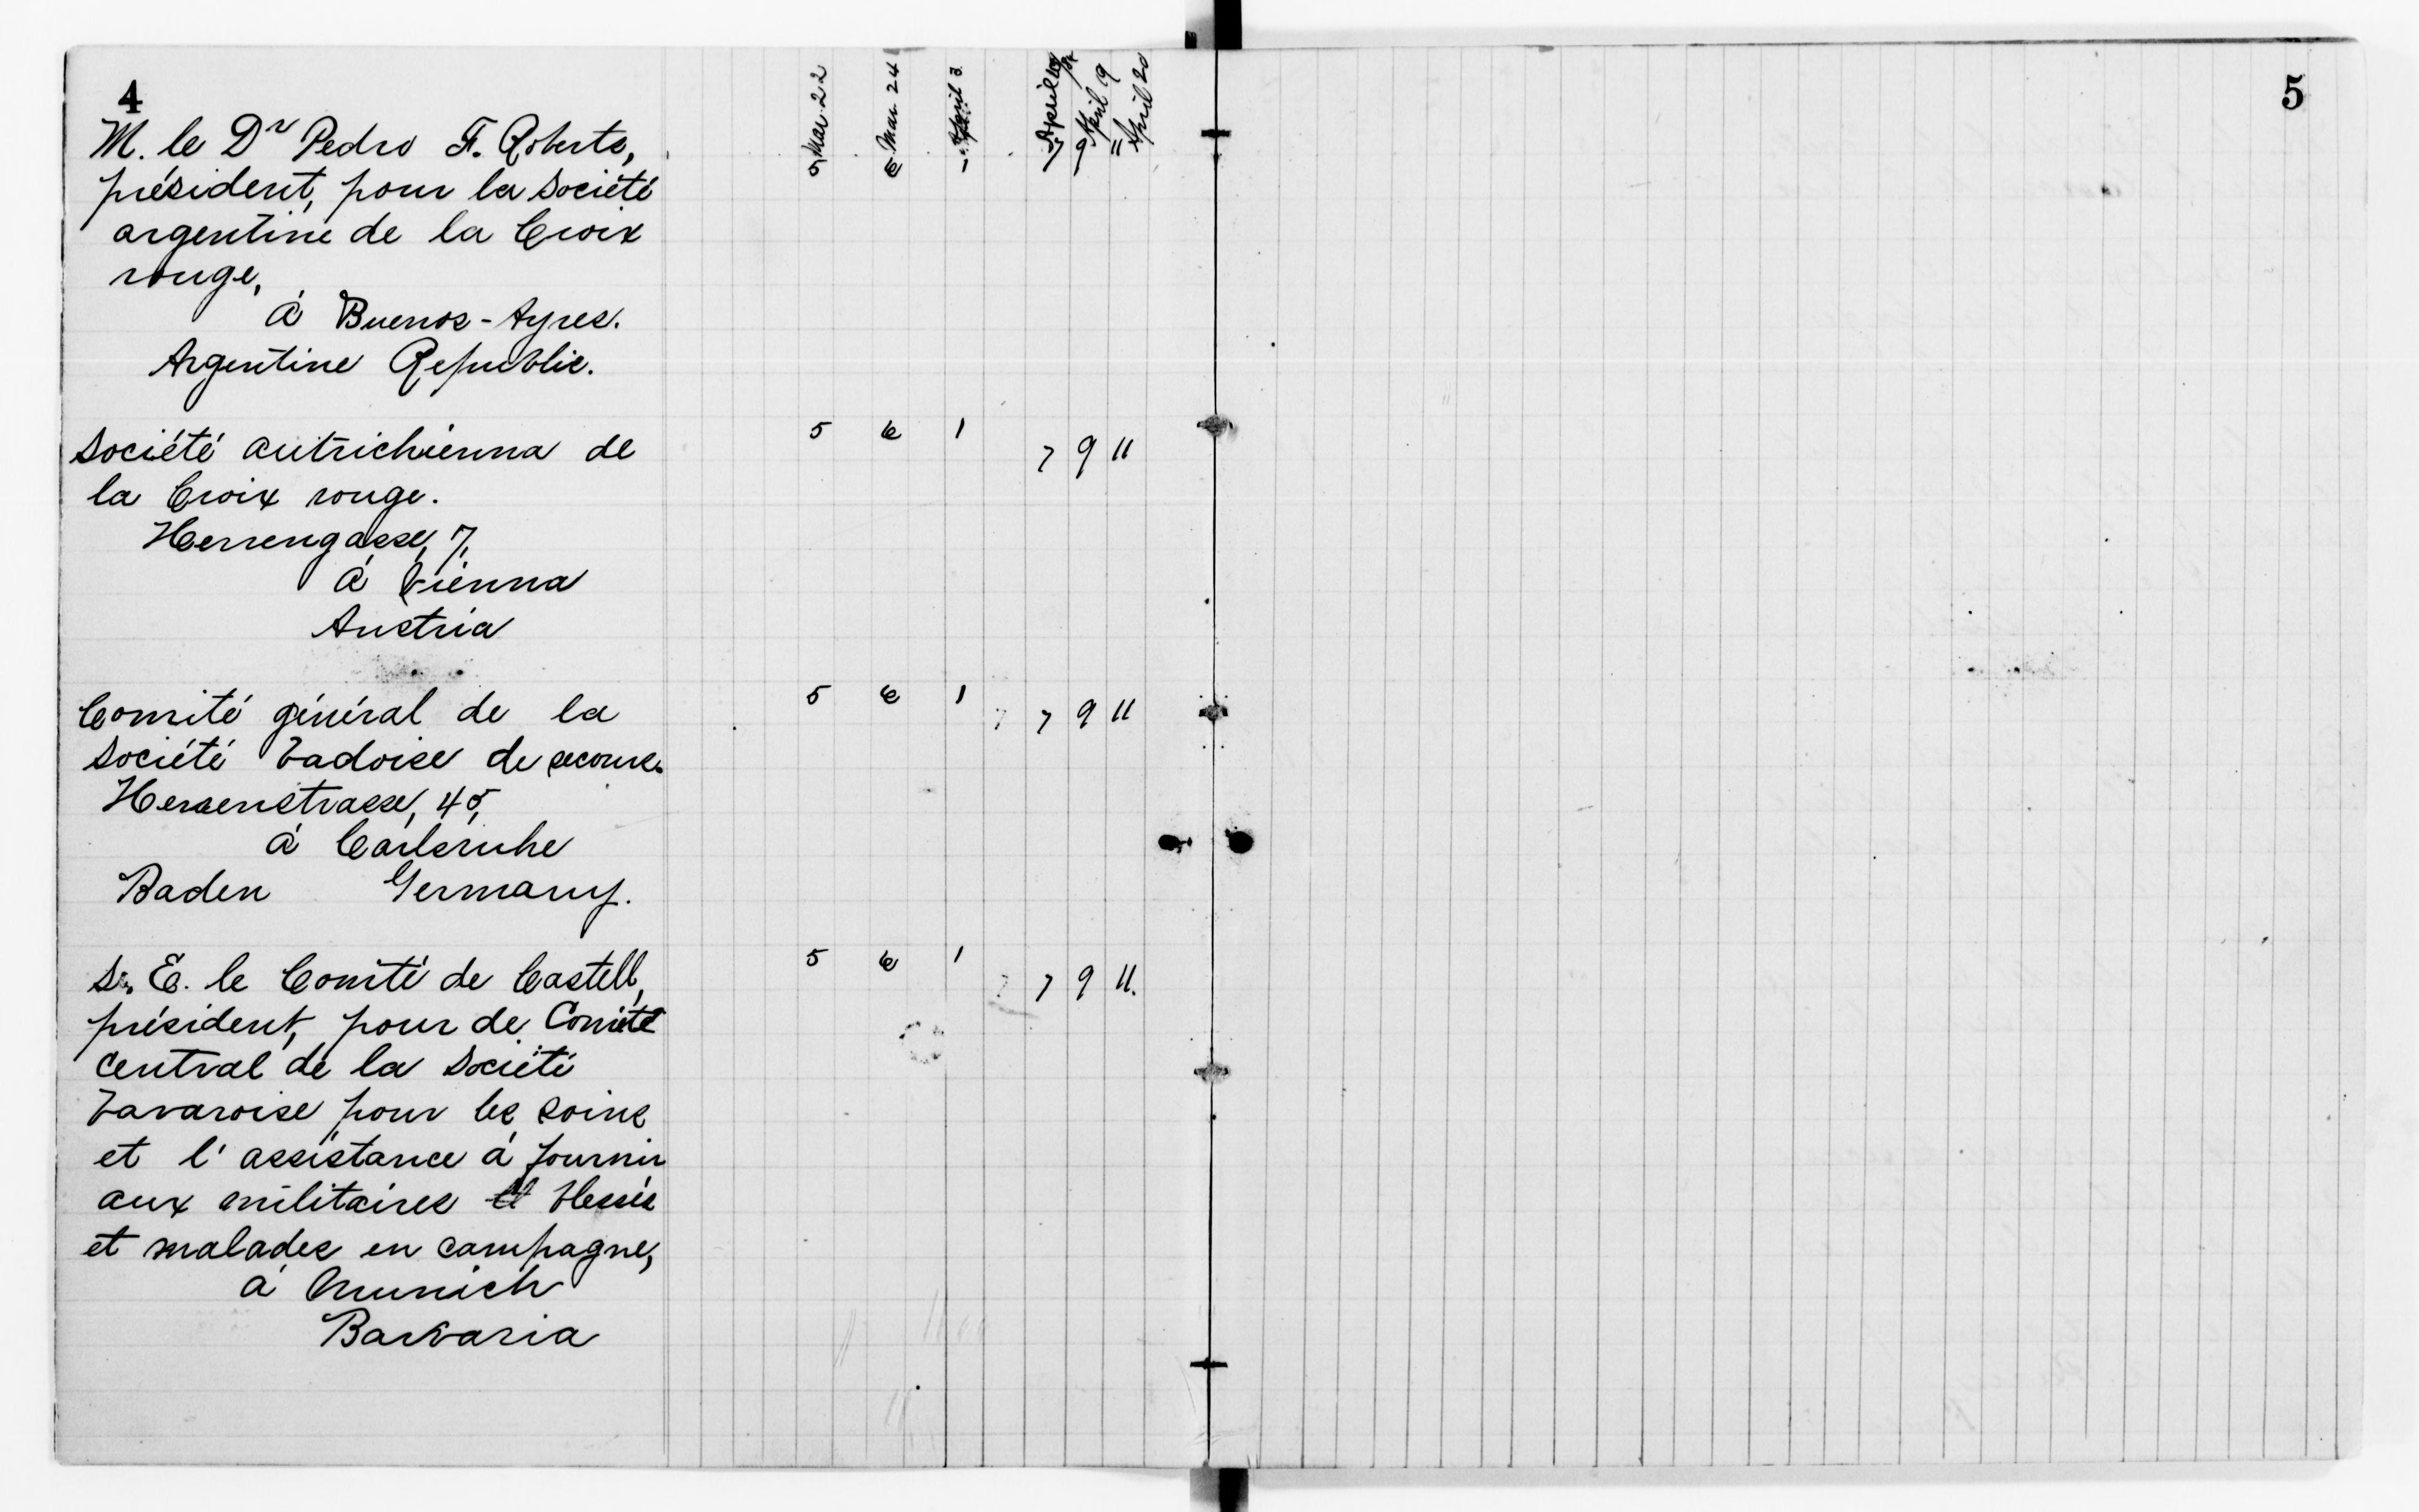 4
M. le Dr Pedro F. Roberts,
président, pour la Société
argentine de la Croix
rouge,
à Buenos-Ayres.
Argentine Republic.
5 Mar. 22
6 Mar. 24
1 April 3
7 April
9 April 19
11 April 20
Société autrichienna de
la Croix rouge.
Herrengasse, 7,
à Vienna
Austria
5 6 1 7 9 11
Comité général de la
Société badoise de secours.
Herrenstrasse, 45,
à Carlsruhe
Baden Germany.
5 6 1 7 7 9 11
S. E. le Comité de Castell,
président, pour de Comité
central de la Société
bavaroise pour les soins
et l'assistance à fournir
aux militaires et blessés
et malades en campagne,
à Munich
Barvaria
5 6 1 7 7 9 11.
5